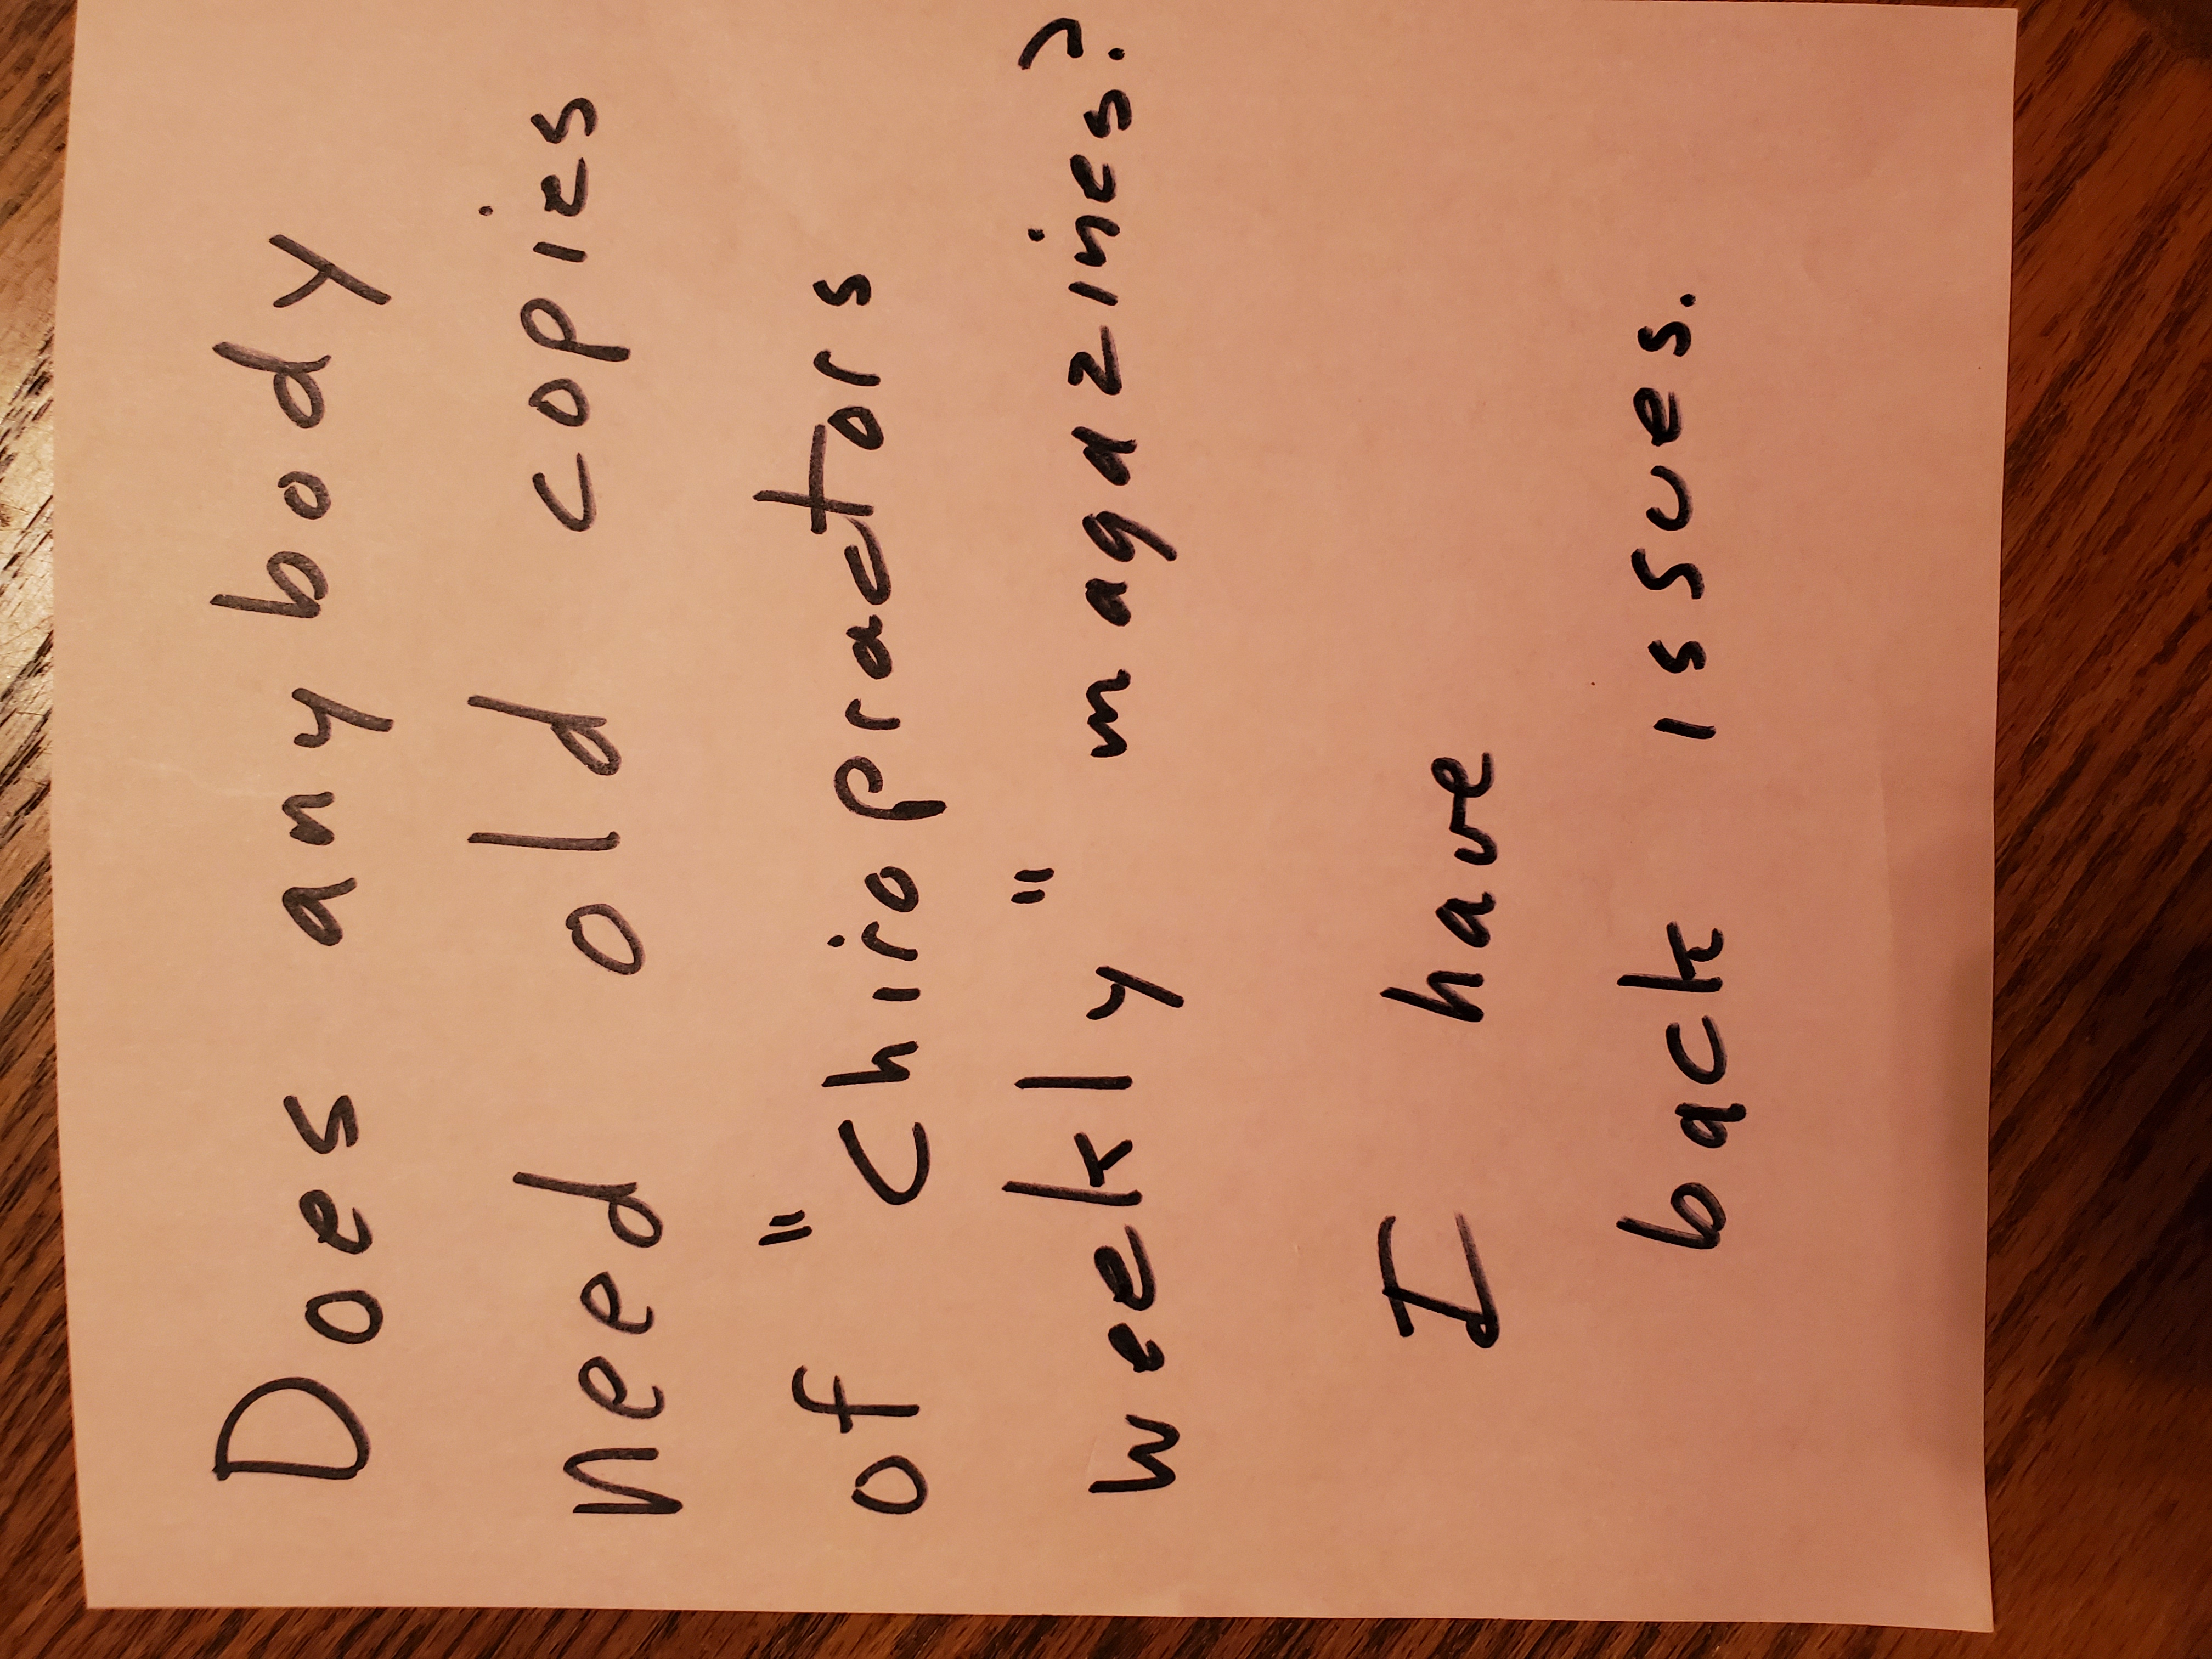 Does any body
need old copies
of "Chiropractors
weekly" magazines?
I have
back issues.